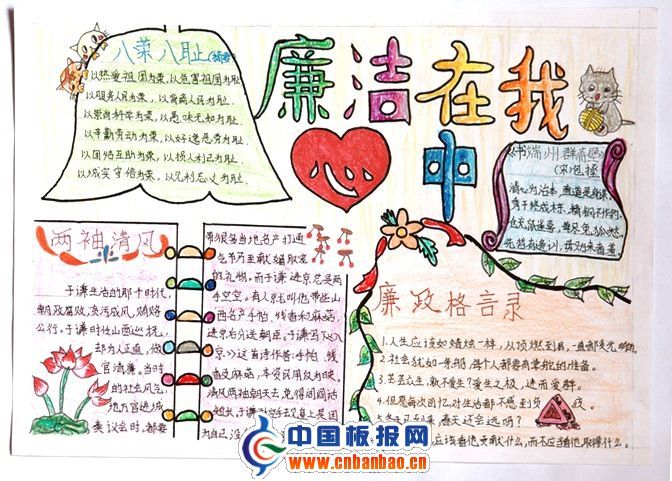 八荣八耻
以热爱祖国为荣,以危害祖国为耻
以服务人民为荣,以背离人民为耻
以崇尚科学为荣,以愚昧无知为耻
以辛勤劳动为荣,以好逸恶劳为耻
以团结互助为荣,以损人利己为耻
以诚实守信为荣,以见利忘义为耻
廉洁在我
心中
书端州郡斋壁
(宋)包拯
清心为治本,直道是身谋
秀干终成栋,精钢不作钩
仓充鼠雀喜,草尽兔狐愁
史册有遗训,
两袖清风
于谦生活的那个时代,
朝政腐败,贪污成风,贿赂
公行。于谦时任山西巡抚,
却为人正直,做
官清廉。当时
的社会风气,
地方官进城
奏议会时,都要
带很多当地名产打通
关节
的礼物。而于谦进京总是两
手空空。有人就叫他带些山
西名产手帕、线香和蘑菇,
进京后分送朝臣。于谦写下《入
京》这首诗作答:手帕、线
香及蘑菇,本资民用反为殃。
清风两袖朝天去,免得闾阎话
短长。
廉政格言录
1.人生应该如蜡烛一样,从顶燃到底,一直都是光明的。
2.社会犹如一条船,每个人都要有掌舵的准备。
3.芸芸众生,孰不爱生?爱生之极,进而爱群。
4.但愿每次回忆,对生活都不感到负疚。
春天还会远吗?
应该看他贡献什么,而不应当看他取得什么。
中国板报网
www.cnbanbao.cn